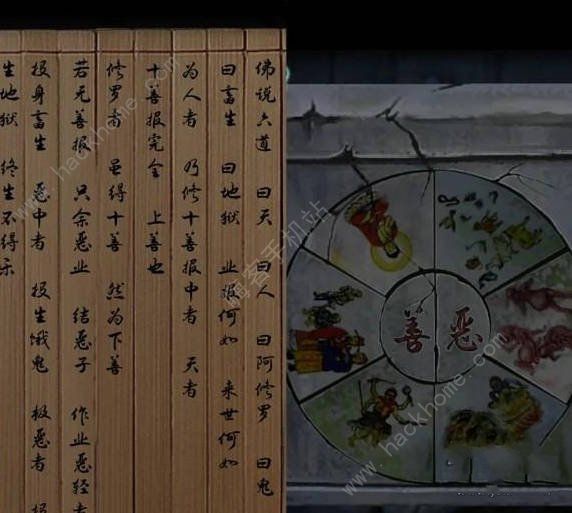 佛说六道 曰天 曰人 曰阿修罗 曰鬼
曰畜生 曰地狱 业报何如 来世何如
为人者 乃修十善报中者 天者
十善报完全 上善也
修罗者 虽得十善 然为下善
若无善报 只余恶业 结恶子 作业恶轻者
报身畜生 恶中者 报生饿鬼 极恶者 报
生地狱 终生不得乐
善 恶
嗨客手机站
www.hackhome.com